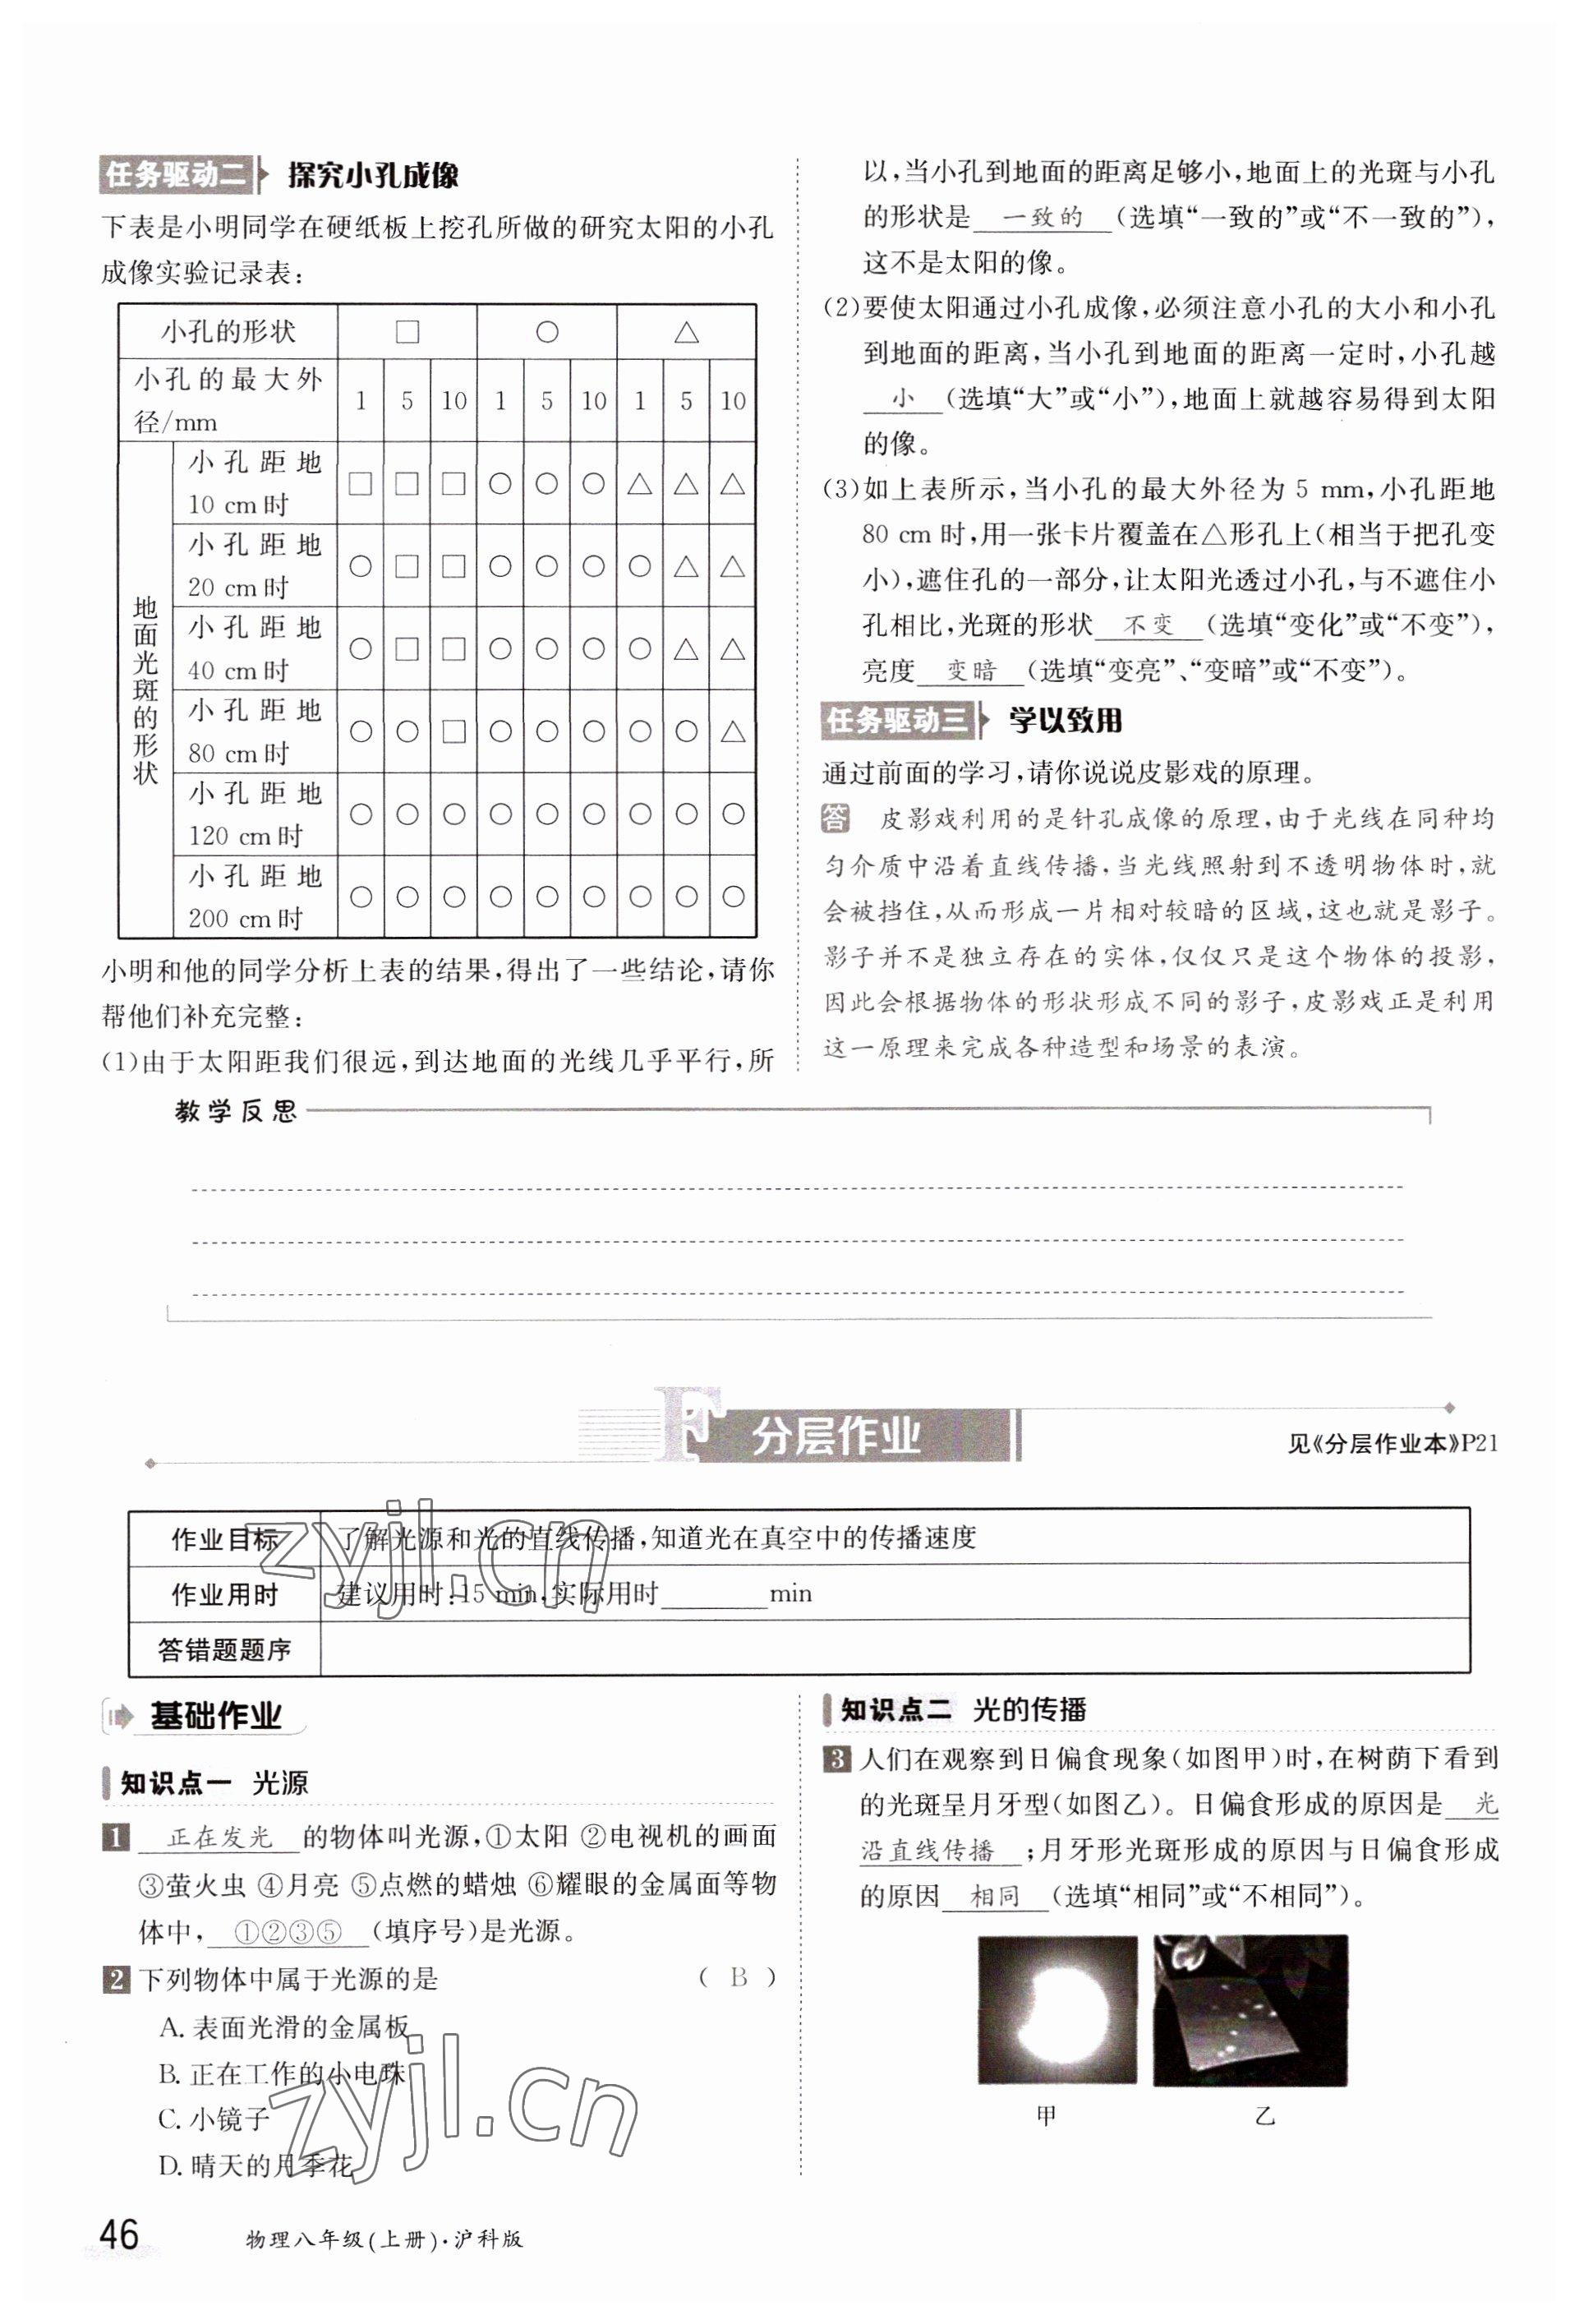 任务驱动二 探究小孔成像
下表是小明同学在硬纸板上挖孔所做的研究太阳的小孔
成像实验记录表:
小孔的形状 □ ○ △
小孔的最大外
径/mm 1 5 10 1 5 10 1 5 10
地面光斑的形状
小孔距地
10 cm时 □ □ □ ○ ○ ○ △ △ △
小孔距地
20 cm时 ○ □ □ ○ ○ ○ ○ △ △
小孔距地
40 cm时 ○ □ □ ○ ○ ○ ○ △ △
小孔距地
80 cm时 ○ ○ □ ○ ○ ○ ○ ○ △
小孔距地
120 cm时 ○ ○ ○ ○ ○ ○ ○ ○ ○
小孔距地
200 cm时 ○ ○ ○ ○ ○ ○ ○ ○ ○
小明和他的同学分析上表的结果,得出了一些结论,请你
帮他们补充完整:
(1)由于太阳距我们很远,到达地面的光线几乎平行,所
以,当小孔到地面的距离足够小,地面上的光斑与小孔
的形状是 一致的 (选填“一致的”或“不一致的”),
这不是太阳的像。
(2)要使太阳通过小孔成像,必须注意小孔的大小和小孔
到地面的距离,当小孔到地面的距离一定时,小孔越
小 (选填“大”或“小”),地面上就越容易得到太阳
的像。
(3)如上表所示,当小孔的最大外径为 5 mm,小孔距地
80 cm时,用一张卡片覆盖在△形孔上(相当于把孔变
小),遮住孔的一部分,让太阳光透过小孔,与不遮住小
孔相比,光斑的形状 不变 (选填“变化”或“不变”),
亮度 变暗 (选填“变亮”、“变暗”或“不变”)。
任务驱动三 学以致用
通过前面的学习,请你说说皮影戏的原理。
答 皮影戏利用的是针孔成像的原理,由于光线在同种均
匀介质中沿着直线传播,当光线照射到不透明物体时,就
会被挡住,从而形成一片相对较暗的区域,这也就是影子。
影子并不是独立存在的实体,仅仅只是这个物体的投影,
因此会根据物体的形状形成不同的影子,皮影戏正是利用
这一原理来完成各种造型和场景的表演。
教学反思
F 分层作业
见《分层作业本》P21
作业目标 了解光源和光的直线传播,知道光在真空中的传播速度
作业用时 建议用时:15 min,实际用时________min
答错题题序
zyjl.cn
基础作业
知识点一 光源
1 正在发光 的物体叫光源,①太阳 ②电视机的画面
③萤火虫 ④月亮 ⑤点燃的蜡烛 ⑥耀眼的金属面等物
体中, ①②③⑤ (填序号)是光源。
2 下列物体中属于光源的是 ( B )
A. 表面光滑的金属板
B. 正在工作的小电珠
C. 小镜子
D. 晴天的月季花
zyjl.cn
知识点二 光的传播
3 人们在观察到日偏食现象(如图甲)时,在树荫下看到
的光斑呈月牙型(如图乙)。日偏食形成的原因是 光
沿直线传播 ;月牙形光斑形成的原因与日偏食形成
的原因 相同 (选填“相同”或“不相同”)。
甲 乙
46 物理八年级(上册)·沪科版